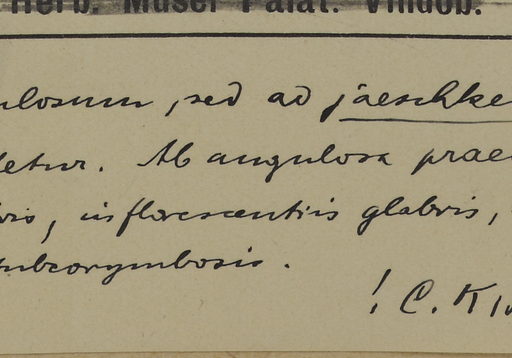 Herb. Musei Palat. Vindob.
ulosum, sed ad jaeschke
etur. Ab angulosa prae
ris, inflorescentiis glabris,
subcorymbosis.
! C. K